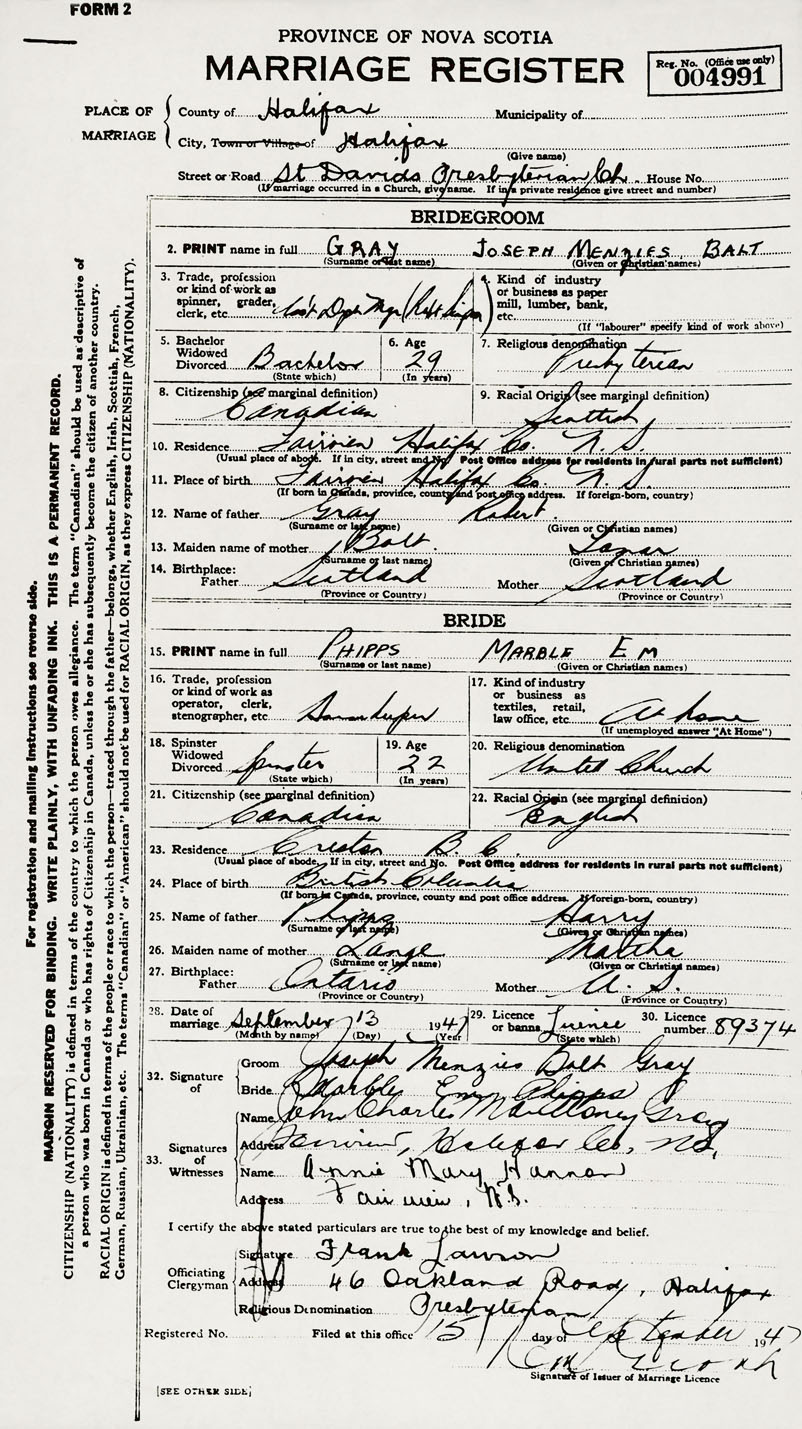 FORM 2
PROVINCE OF NOVA SCOTIA
MARRIAGE REGISTER
Reg. No. (Office use only)
004991
PLACE OF MARRIAGE
County of Halifax Municipality of
City, Town or Village of Halifax
(Give name)
Street or Road St Davids Presbyterian Ch. House No.
(If marriage occurred in a Church, give name. If in a private residence give street and number)
BRIDEGROOM
2. PRINT name in full GRAY JOSEPH MENZIES BALT
(Surname or last name) (Given or Christian names)
3. Trade, profession or kind of work as spinner, grader, clerk, etc. Dept Mgr
4. Kind of industry or business as paper mill, lumber, bank, etc.
(If "labourer" specify kind of work above)
5. Bachelor Widowed Divorced Bachelor
(State which)
6. Age 29
(In years)
7. Religious denomination Presbyterian
8. Citizenship (see marginal definition) Canadian
9. Racial Origin (see marginal definition) Scottish
10. Residence Fairview Halifax Co. N S
(Usual place of abode. If in city, street and No. Post Office address for residents in rural parts not sufficient)
11. Place of birth Fairview Halifax Co. N. S.
(If born in Canada, province, county and post office address. If foreign-born, country)
12. Name of father Gray Robert
(Surname or last name) (Given or Christian names)
13. Maiden name of mother Balt
(Surname or last name) (Given or Christian names)
14. Birthplace: Father Scotland Mother Scotland
(Province or Country) (Province or Country)
BRIDE
15. PRINT name in full PHIPPS MARBLE EM
(Surname or last name) (Given or Christian names)
16. Trade, profession or kind of work as operator, clerk, stenographer, etc
17. Kind of industry or business as textiles, retail, law office, etc. At home
(If unemployed answer "At Home")
18. Spinster Widowed Divorced Spinster
(State which)
19. Age 22
(In years)
20. Religious denomination United Church
21. Citizenship (see marginal definition) Canadian
22. Racial Origin (see marginal definition) English
23. Residence Creston B. C.
(Usual place of abode, If in city, street and No. Post Office address for residents in rural parts not sufficient)
24. Place of birth British Columbia
(If born in Canada, province, county and post office address. If foreign-born, country)
25. Name of father Phipps Harry
(Surname or last name) (Given or Christian names)
26. Maiden name of mother Lange Martha
(Surname or last name) (Given or Christian names)
27. Birthplace: Father Ontario Mother U. S.
(Province or Country) (Province or Country)
28. Date of marriage September 13 1947
(Month by name) (Day) (Year)
29. Licence or banns Licence
(State which)
30. Licence number 89374
32. Signature of
Groom Joseph Menzies Balt Gray
Bride Marble Emy Phipps
33. Signatures of Witnesses
Name John Charles Gray
Address Fairview, Halifax Co, N.S.
Name Annie Mary Hannon
Address Fairview, N.S.
I certify the above stated particulars are true to the best of my knowledge and belief.
Officiating Clergyman
Signature Frank Lawson
Address 46 Oakland Road, Halifax
Religious Denomination Presbyterian
Registered No. Filed at this office 15 day of September 1947
Signature of Issuer of Marriage Licence
[SEE OTHER SIDE]
For registration and mailing instructions see reverse side.
MARGIN RESERVED FOR BINDING. WRITE PLAINLY, WITH UNFADING INK. THIS IS A PERMANENT RECORD.
CITIZENSHIP (NATIONALITY) is defined in terms of the country to which the person owes allegiance. The term "Canadian" should be used as descriptive of
a person who was born in Canada or who has rights of Citizenship in Canada, unless he or she has subsequently become the citizen of another country.
RACIAL ORIGIN is defined in terms of the people or race to which the person—traced through the father—belongs, whether English, Irish, Scottish, French,
German, Russian, Ukrainian, etc. The terms "Canadian" or "American" should not be used for RACIAL ORIGIN, as they express CITIZENSHIP (NATIONALITY).